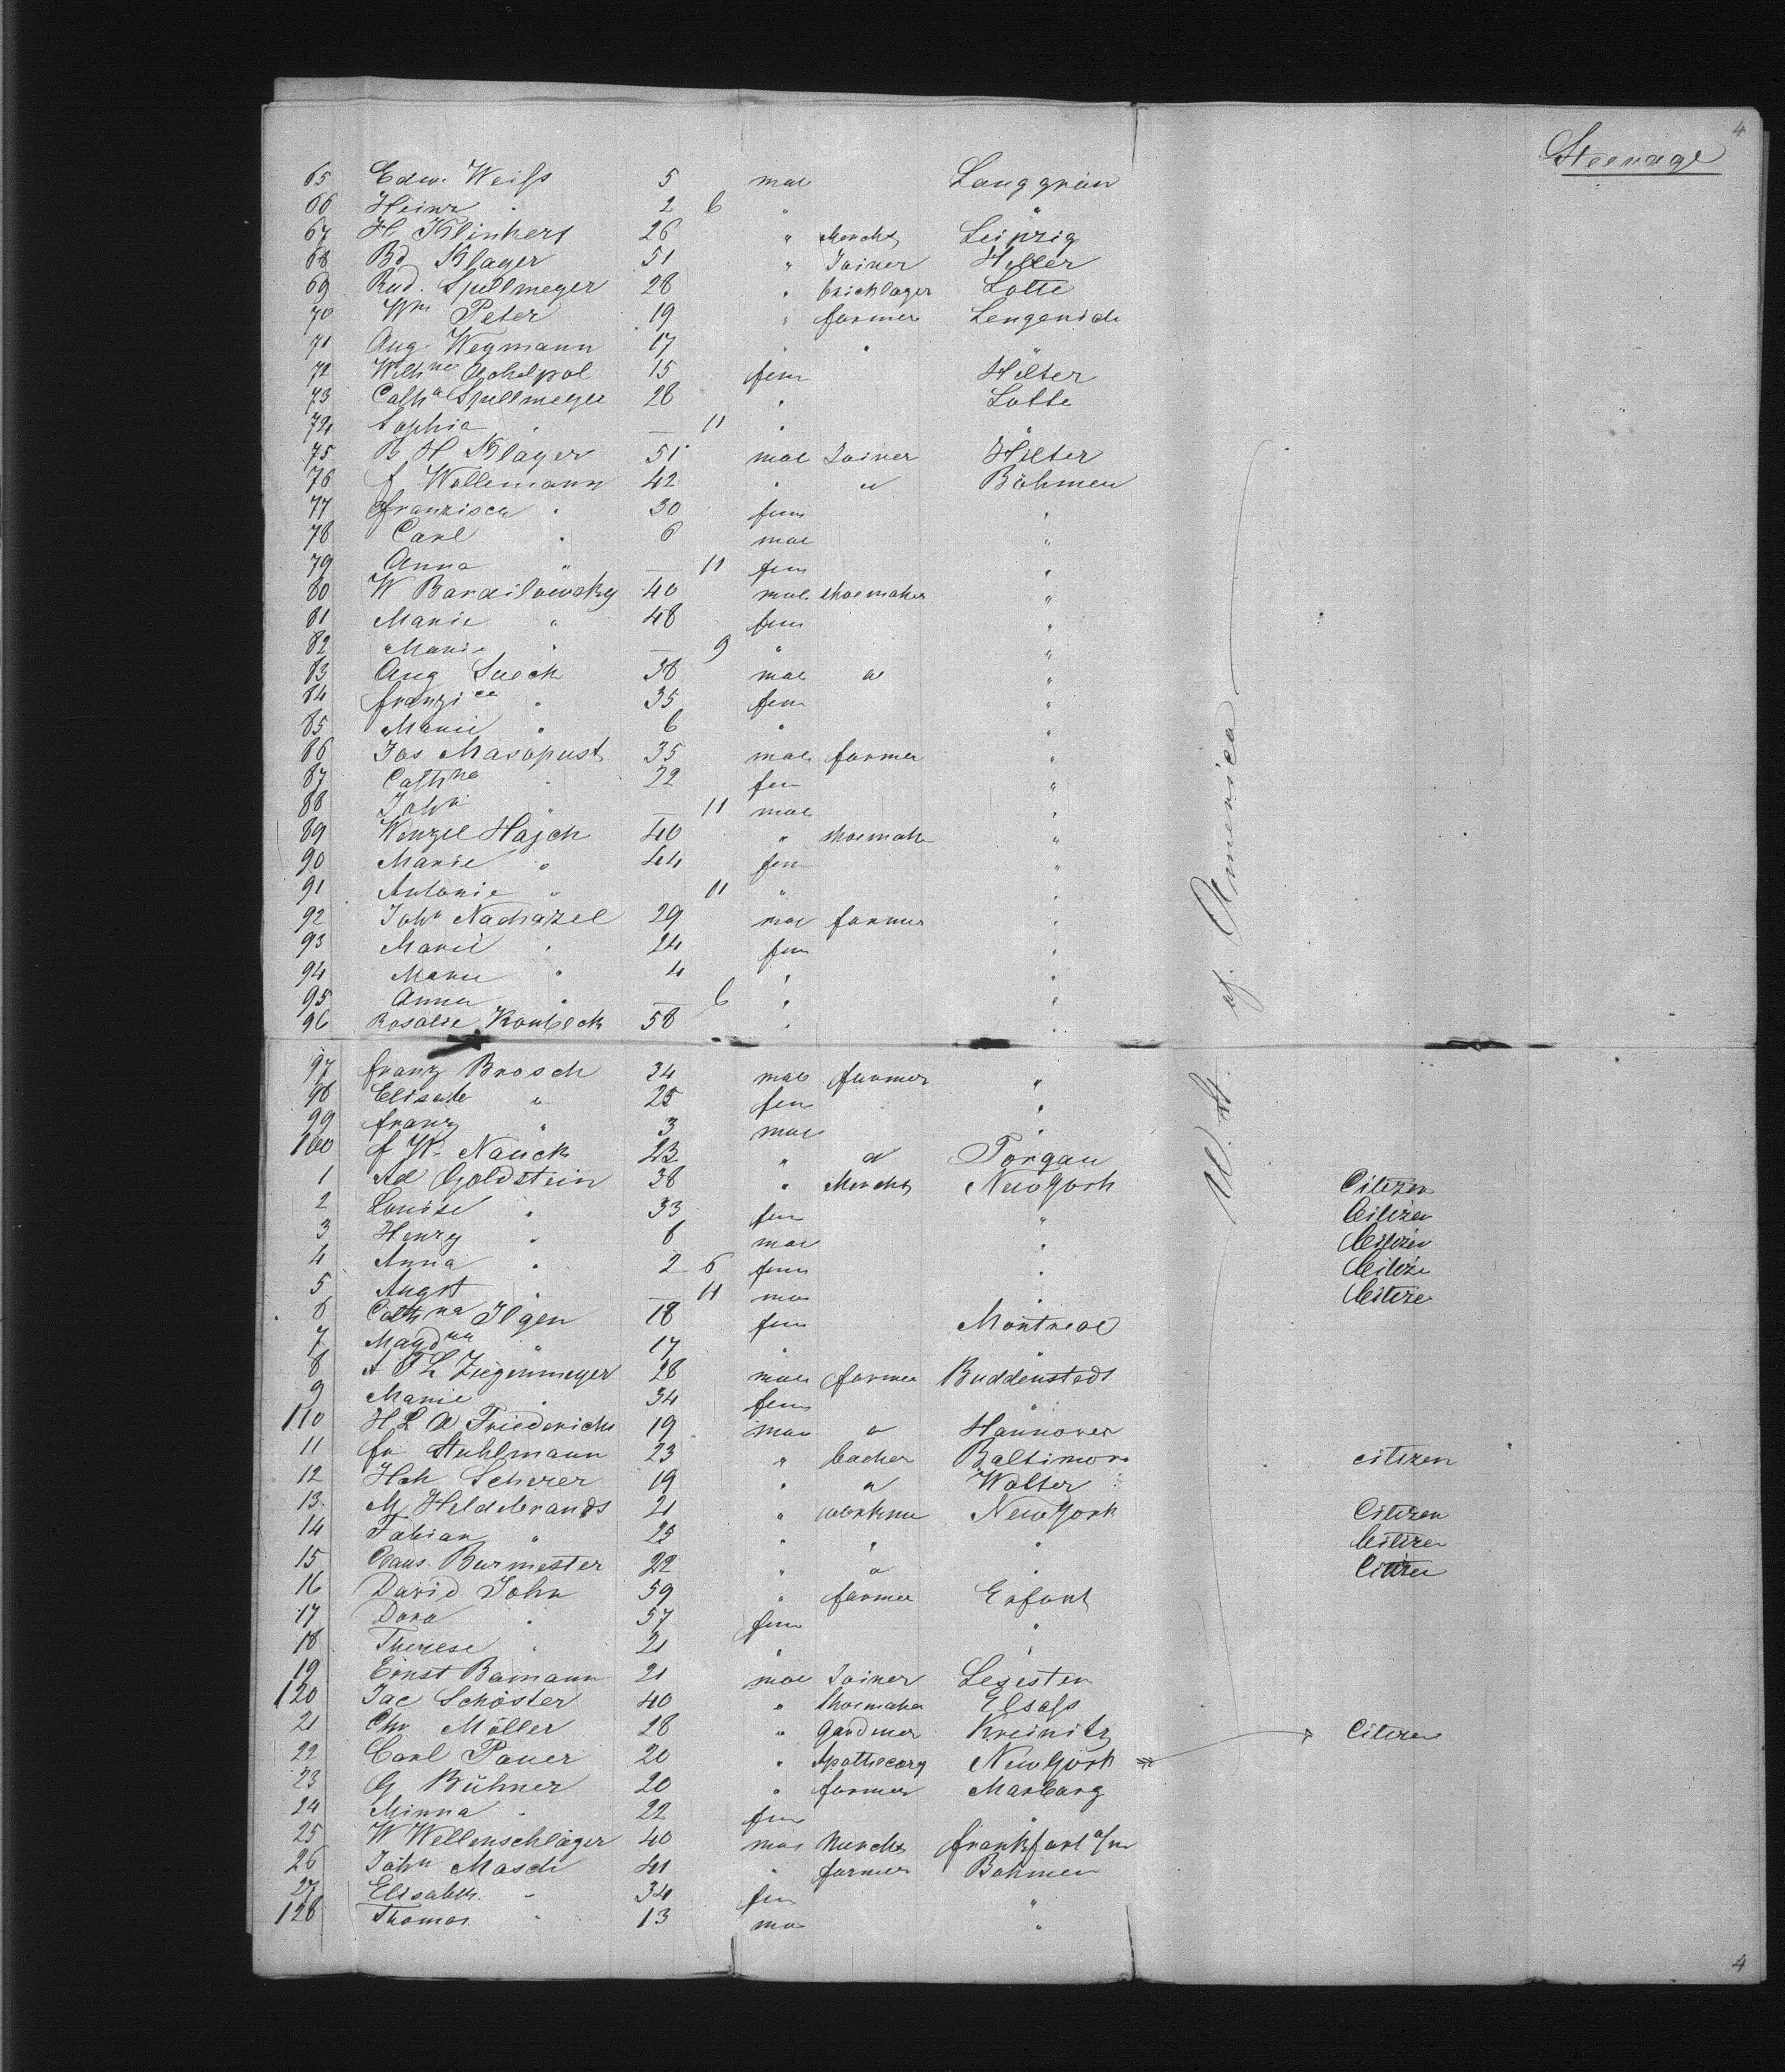 4
Steerage
65 Edw. Weiss 5 mal Langgrün
66 Heinr " 2 6 " "
67 H. Klinkert 26 " Mercht Leipzig
68 Bd Klager 51 " Joiner Helter
69 Rud. Spellmeyer 28 " bricklayer Lotte
70 Wm Peter 19 " farmer Lengerich
71 Aug. Wegmann 17 " " "
72 Wilhne 15 fem Hilter
73 Catha Spellmeyer 28 " Lotte
74 Sophie " — 11 " "
75 B H Klager 51 mal Joiner Hilter
76 f Wollemann 42 " " Böhmen
77 franzisca " 30 fem "
78 Carl " 6 mal "
79 Anna " — 11 fem "
80 W Bardilowsky 40 mal Shoemaker "
81 Marie " 48 fem "
82 Marie " — 9 " "
83 Aug Sueck 38 mal " "
84 franzica " 35 fem "
85 Marie " 6 " "
86 Jos Masopust 35 mal farmer "
87 Cathne " 22 fem "
88 Johн " — 11 mal "
89 Wenzel Hajek 40 " Shoemak "
90 Marie " 44 fem "
91 Antonie " 11 " "
92 Johн Nachazel 29 mal farmer "
93 Marie " 24 fem "
94 Marie " 4 " "
95 Anna " — 6 " "
96 Rosalie Koubeck 58 " "
97 franz Brosch 34 mal farmer "
98 Elisabe " 25 fem "
99 franz " 3 mal "
100 f W. Nauck 23 " " Torgau
1 Ad Goldstein 38 " Mercht New York Citizen
2 Louise " 33 fem " Citizen
3 Henry " 6 mal " Citizen
4 Anna " 2 6 fem " Citize
5 Augst " — 11 ma " Citize
6 Cathna Ilgen 18 fem Montreal
7 Magdna " 17 " "
8 A F L Ziegenmeyer 28 mal farmer Buddenstedt
9 Marie " 34 fem "
110 H L A Friederichs 19 mal " Hannover
11 fr Stuhlmann 23 " backer Baltimore citizen
12 Hch Scherer 19 " " Walter
13 M Heldebrandt 21 " workma New York Citizen
14 Fabian " 25 " " " Citizen
15 Claus Burmester 22 " " " Citizen
16 David John 59 " farmer Erfurt
17 Dora " 57 fem "
18 Therese " 21 " "
19 Ernst Bamann 21 mal Joiner Legesten
120 Jac Schöster 40 " Shoemaker Elsass
21 Chr Möller 28 " Gardner Kreinitz
22 Carl Pauer 20 " Apothecary New York Citizen
23 G Bühner 20 " farmer Marburg
24 Minna " 22 fem "
25 W Wellenschläger 40 mal Merch frankfurt a/m
26 Johн Masch 41 " farmer Bohmen
27 Elisabeth " 34 fem "
128 Thomas " 13 ma "
U. St. of America
4